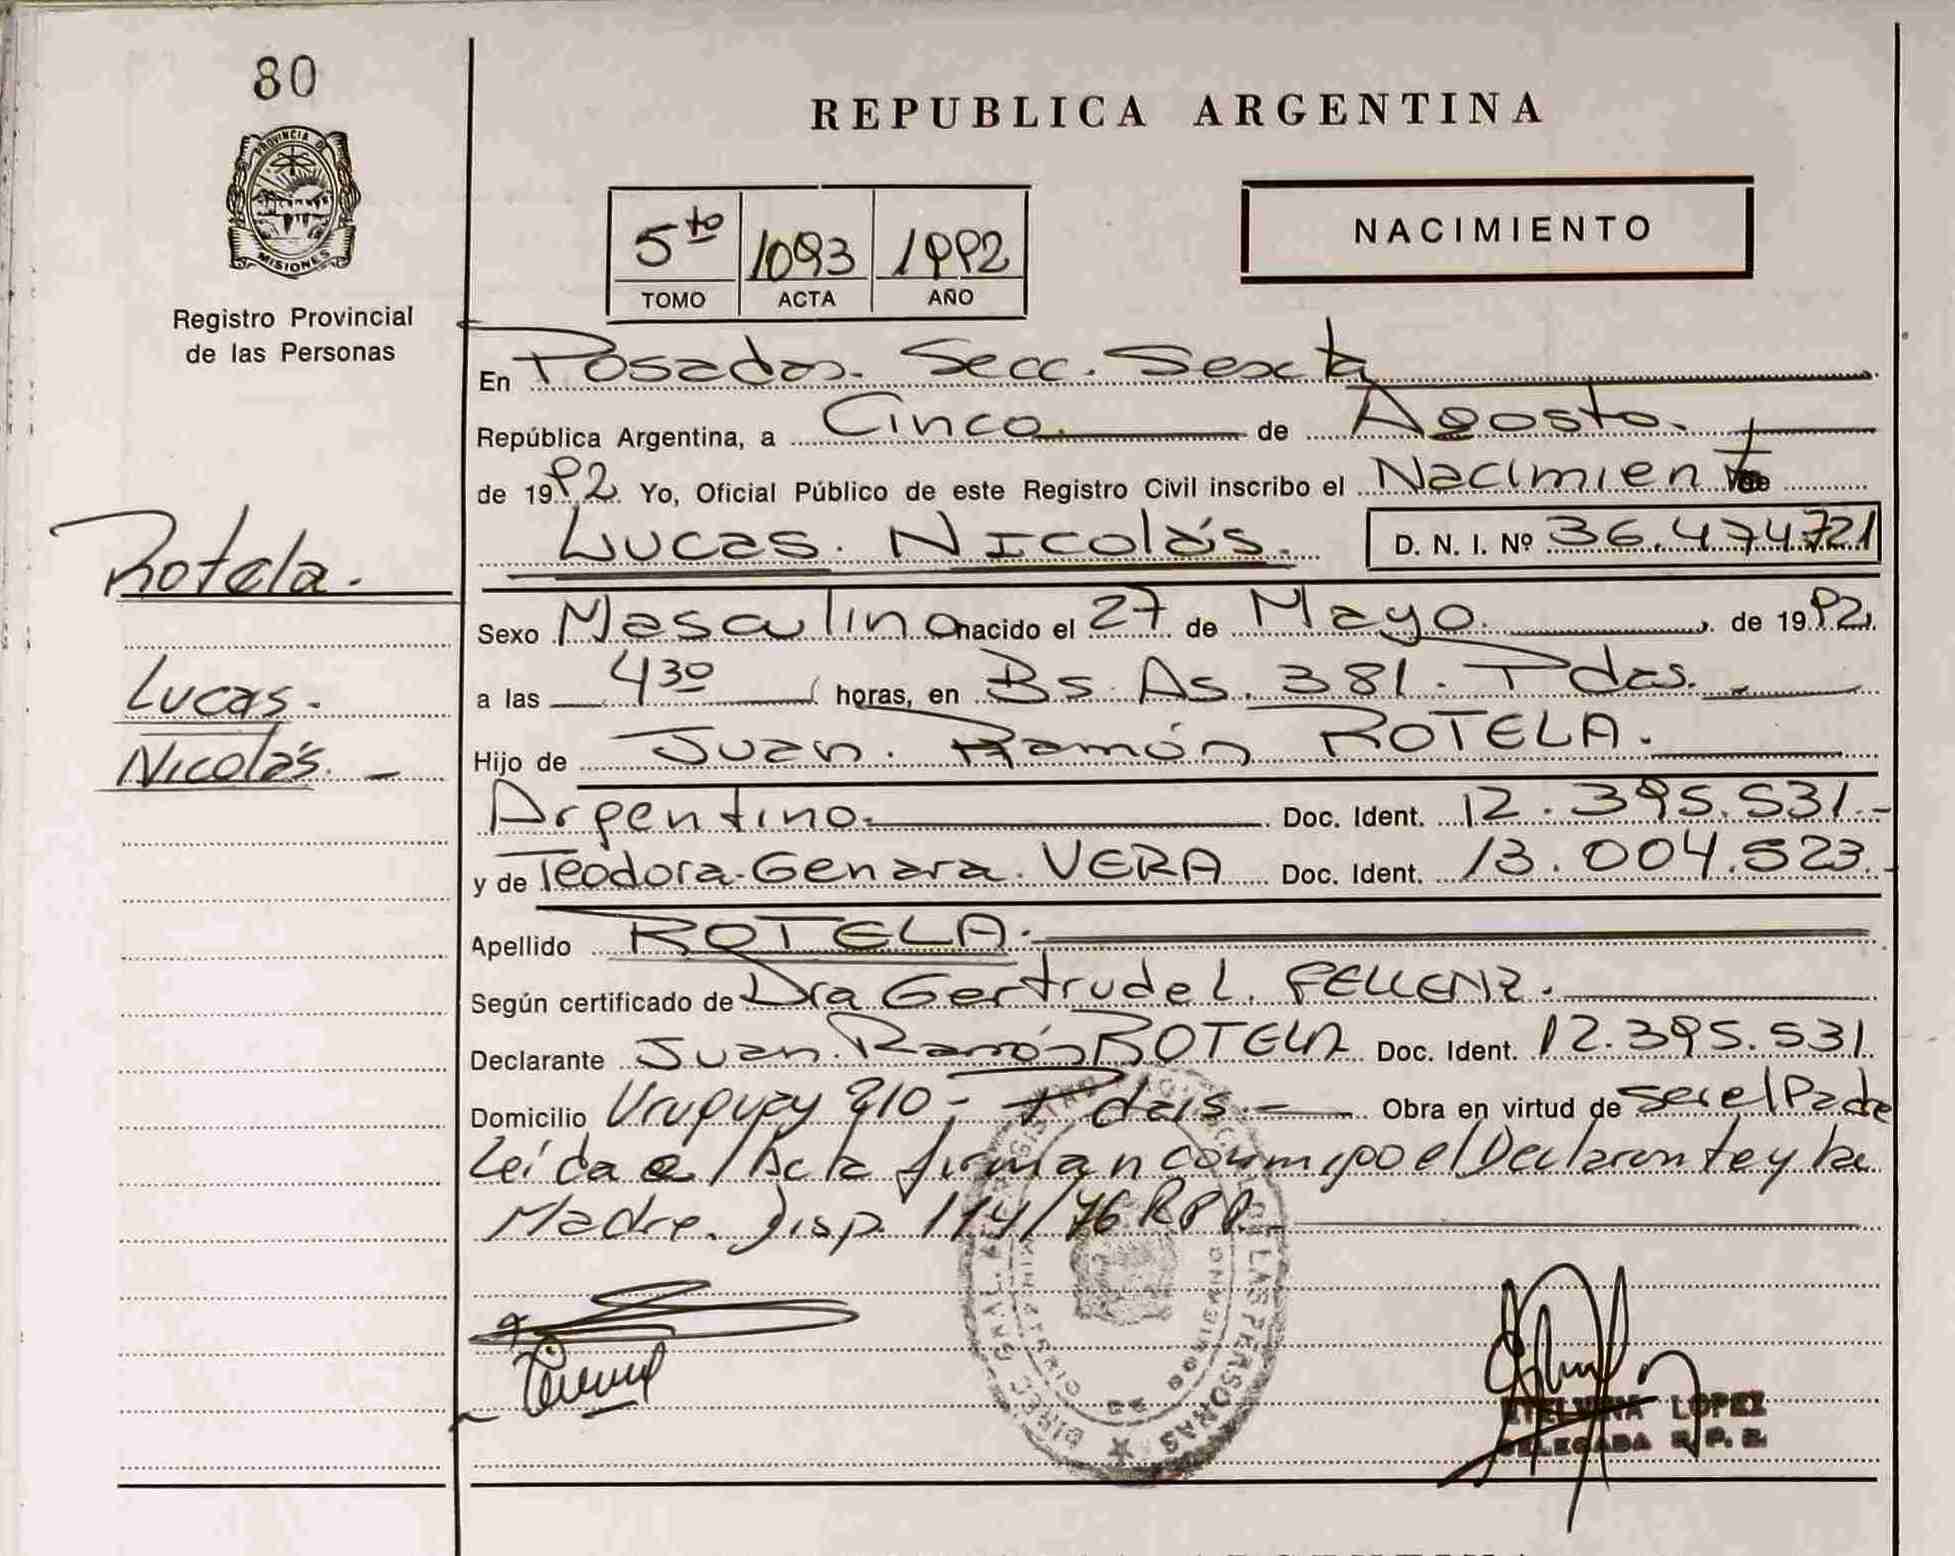 80
PROVINCIA D
MISIONES
Registro Provincial
de las Personas
Rotela.
Lucas.
Nicolás.
REPUBLICA ARGENTINA
5to 1093 1992
TOMO ACTA AÑO
NACIMIENTO
En Posadas. Secc. Sexta
República Argentina, a Cinco. de Agosto.
de 1992. Yo, Oficial Público de este Registro Civil inscribo el Nacimiento
Lucas. Nicolás. D. N. I. Nº 36.474.721
Sexo Masculino nacido el 27 de Mayo. de 1992.
a las 430 horas, en Bs. As. 381. Pdas.
Hijo de Juan. Ramón ROTELA.
Argentino. Doc. Ident. 12.395.531.-
y de Teodora-Genara. VERA Doc. Ident. 13.004.523.-
Apellido ROTELA.
Según certificado de Dra Gertrude L. FELLENZ.
Declarante Juan. Ramón ROTELA Doc. Ident. 12.395.531.
Domicilio Uruguay 210- Pdas.- Obra en virtud de ser el Padre
Leída el Acta firman conmigo el Declarante y la
Madre. Disp. 114/76 RPP.
LAS PERSONAS
GOBIERNO
DIREC GRAL
LOPEZ
DELEGADA R. P. P.